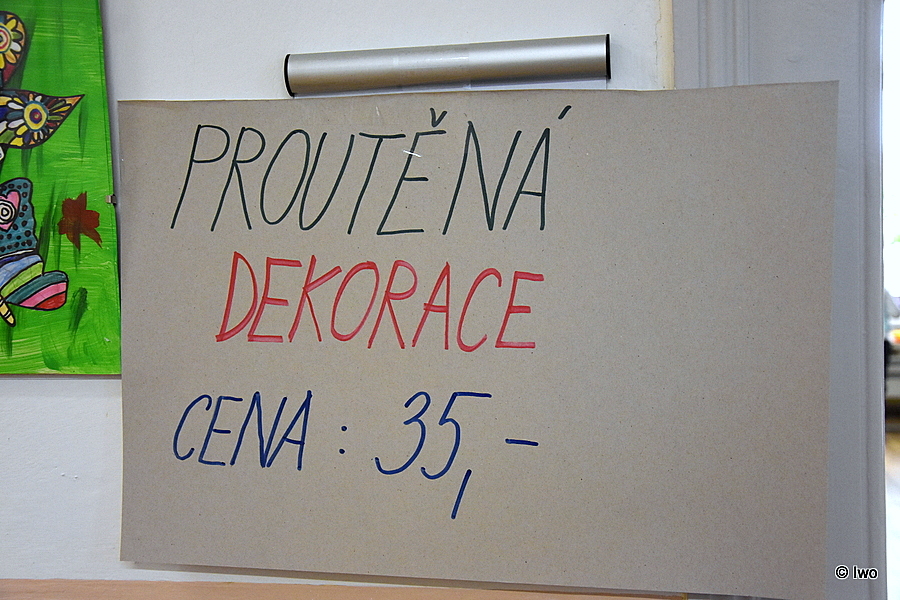 PROUTĚNÁ
DEKORACE
CENA: 35,-
© Iwo